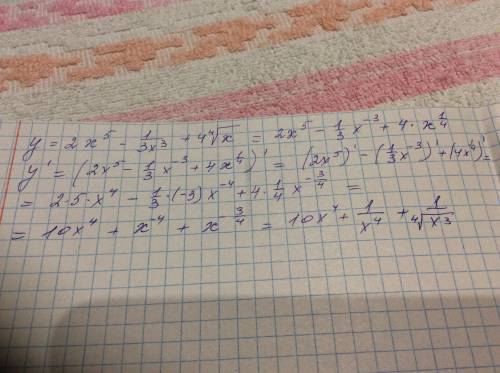 y = 2x⁵ - 1/(3x³) + 4⁴√x = 2x⁵ - 1/3 x⁻³ + 4 · x^(1/4)
y' = (2x⁵ - 1/3 x⁻³ + 4x^(1/4))' = (2x⁵)' - (1/3 x⁻³)' + (4x^(1/4))' =
= 2·5·x⁴ - 1/3·(-3)x⁻⁴ + 4·1/4 x^(-3/4) =
= 10x⁴ + x⁻⁴ + x^(-3/4) = 10x⁴ + 1/x⁴ + 1/⁴√x³